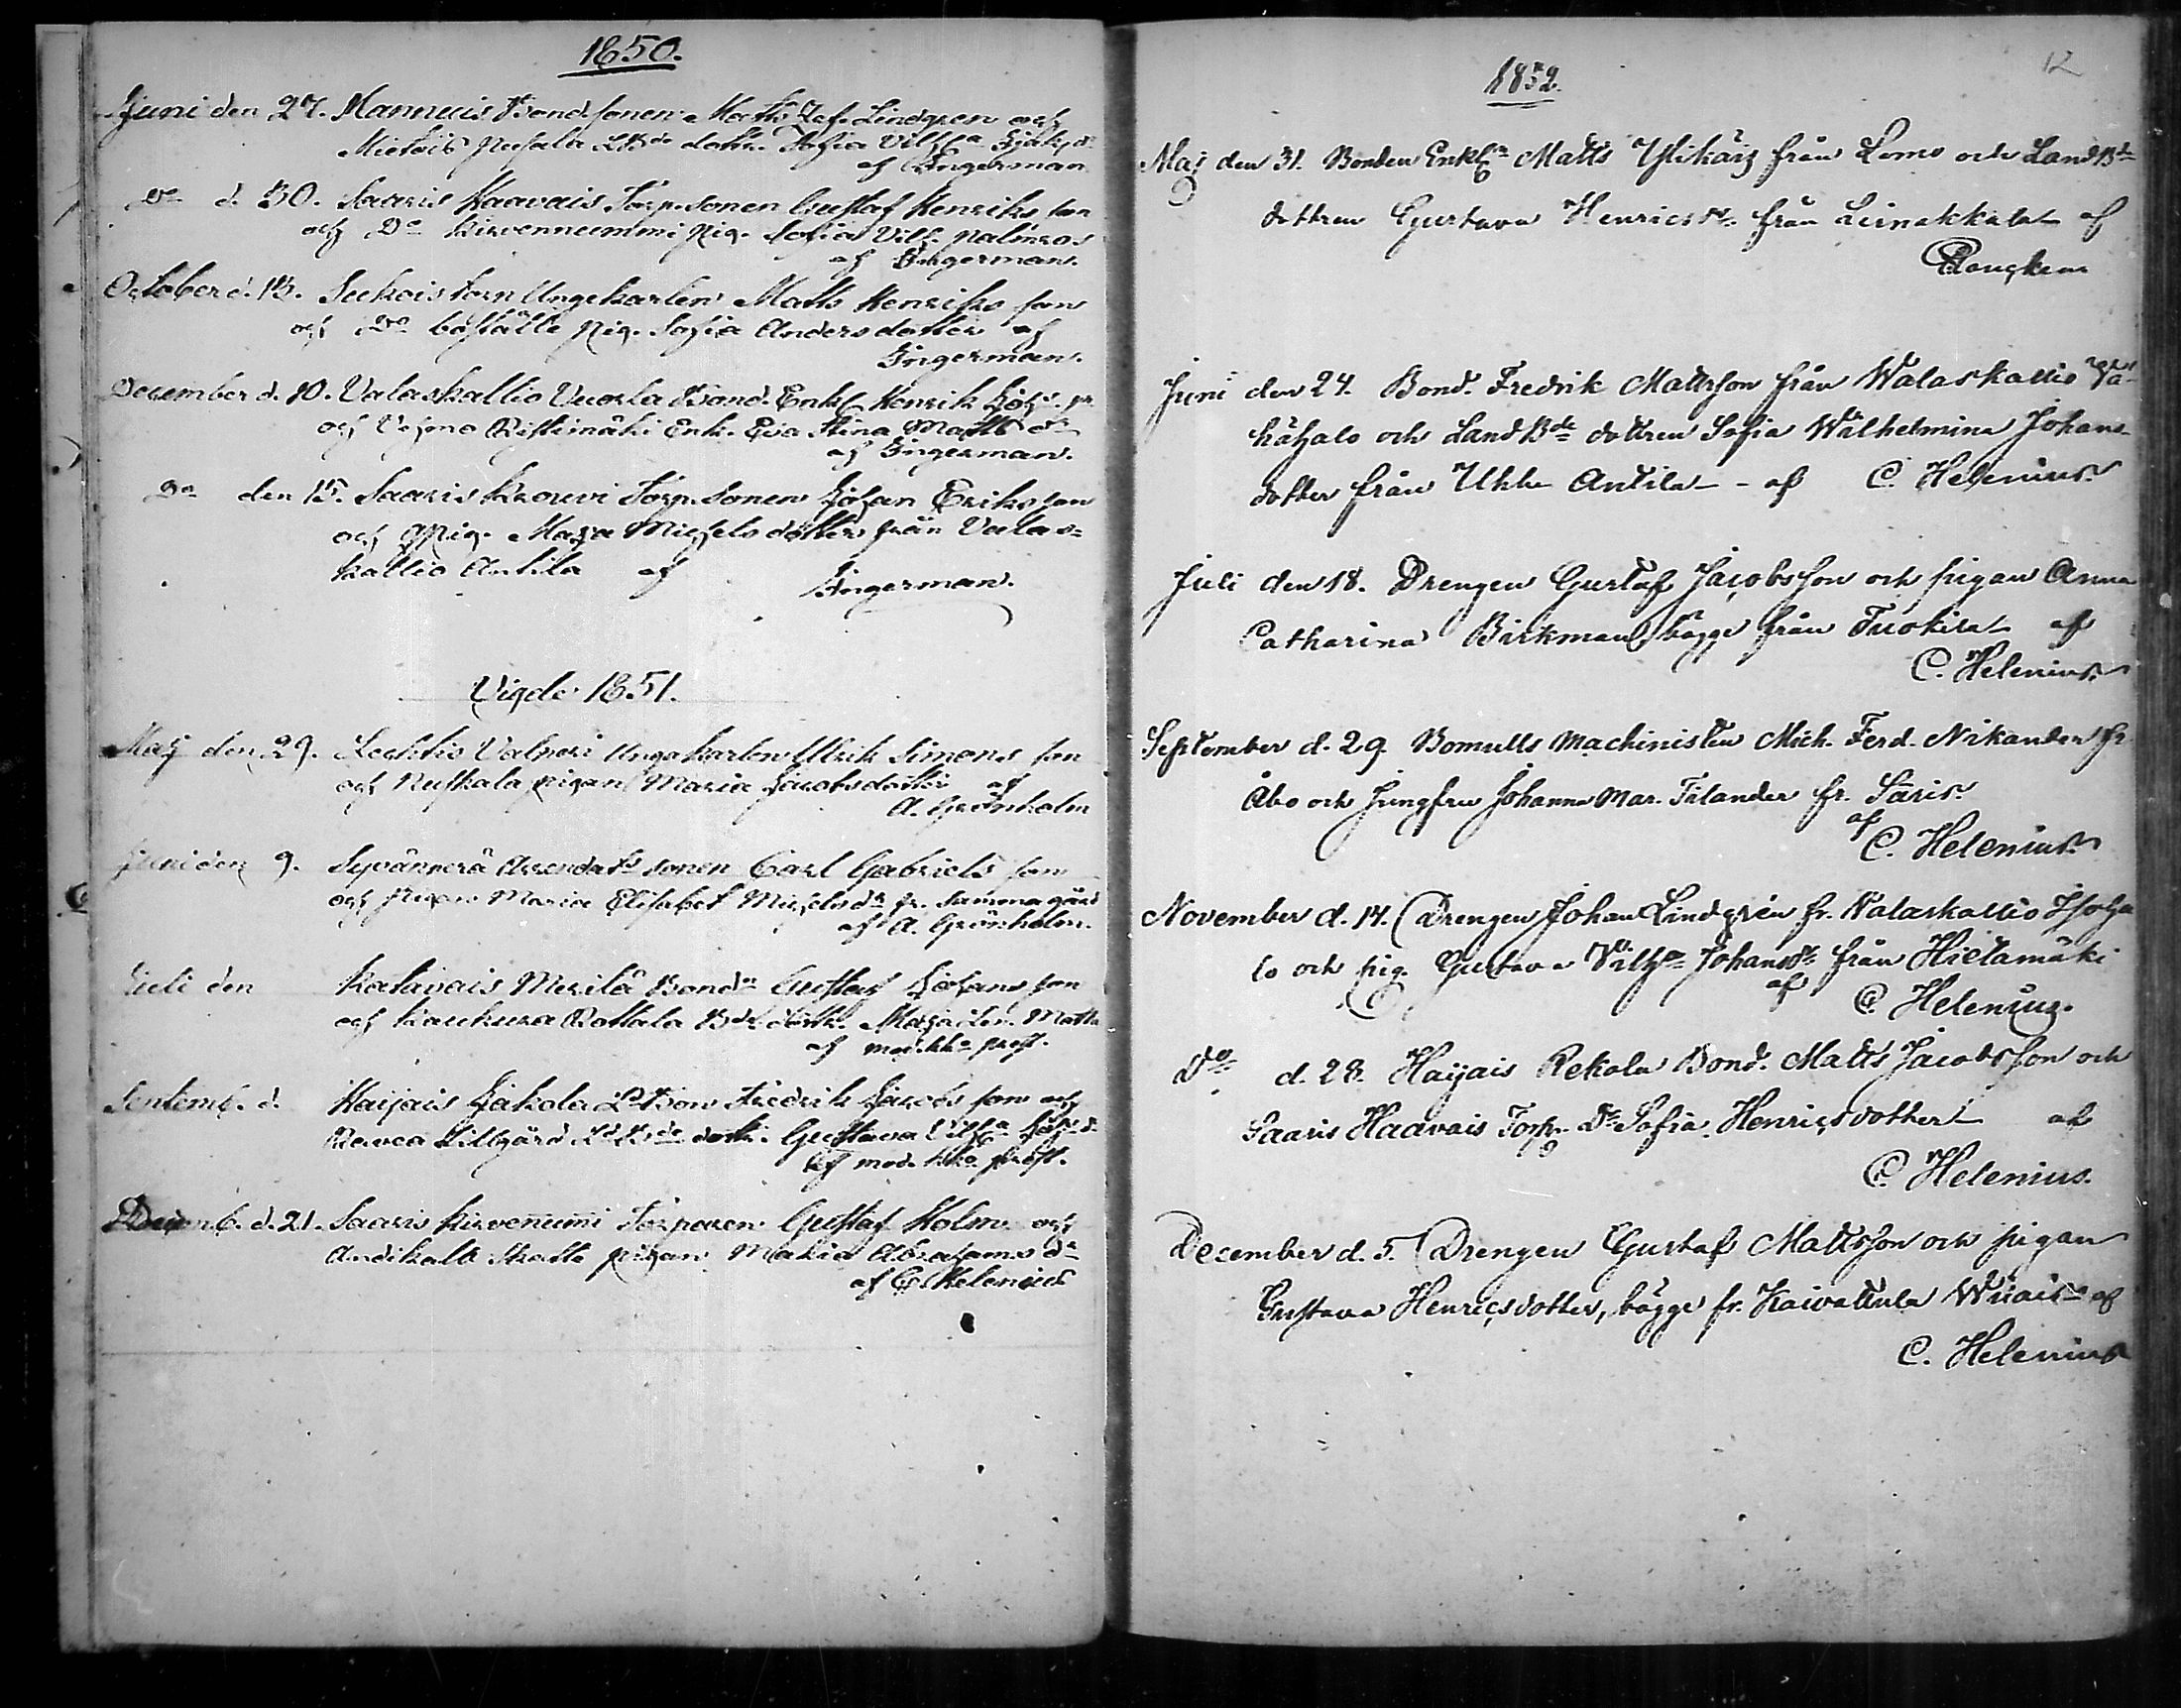 1850.
Juni den 27. Mannuis Bondsonen Matts Jos. Lindgren och
Mietois Pusala LBde dottr. Sofia Vilh:a
af Ingerman
Do d. 30. Saaris Haavais Torp. sonen Gustaf Henriks son
och Do Kirvennummi Pig. Sofia Vilh. Palmros
af Ingerman.
October d. 13. torn Ungekarlen Matts Henriks son
och Do boställe Pig. Sofia Anders dotter af
Ingerman.
December d. 10. Valaskallio Vuorla Bond. Enkl. Henrik
och Ristimäki Enk. Eva Stina Matts dr
af Ingerman.
Do den 15. Saaris Krouvi Torp. sonen Johan Eriks son
och Pig. Maja Michels dotter från Valas-
kallio Antila af Ingerman.
Vigde 1851.
Maij den 29. Lechtis Valperi Ungekarlen Ulrik Simons son
och Ruskala pigan Maria Jacobsdotter af
A. Grönholm
Juni den 9. Syvänperä Arrendats sonen Carl Gabriels son
och Pigan Maria Elisabet Michelsdr fr. samma gård
af A. Grönholm.
Juli den Katavais Merilä Bondn Gustaf Johans son
och Kaukura Rottala Bde dottr. Maja Len. Matts
af mod. kka prest.
Septemb. d. Haijais Jakola LdBon Fredrik Jacobs son och
Lillgård LdBde dottr. Gustava Vilh:a Joh. d.
af mod. kka prest.
Decemb. d. 21. Saaris Kirvenummi Torparen Gustaf Holm och
Andikala Skatte pigan Maria Abrahams dr
af C. Helenius
12
1852.
Maj den 31. Bonden Enkl:n Matts Ylikärz från Lemo och LandBde
dottren Gustava Henricsdr från Leinakkala af
Juni den 24. Bond. Fredrik Mattsson från Walaskallio Vä-
hähalo och LandBde dottren Sofia Wilhelmina Johans-
dotter från Uhlu Antila - af C. Helenius.
Juli den 18. Drengen Gustaf Jacobsson och pigan Anna
Catharina Birkman, bägge från Tuokila af
C. Helenius.
September d. 29. Bomulls Machinisten Mich. Ferd. Nikander fr.
Åbo och Jungfru Johanna Mar. Tilander fr. Saris.
af
C. Helenius.
November d. 14. Drengen Johan Lindgren fr. Walaskallio Isoha
lo och pig. Gustava Vilh:a Johansdr från Hietamäki
af C. Helenius.
Do d. 28. Haijais Rekola Bond. Matts Jacobsson och
Saaris Haavais Torp. Dr Sofia Henricsdotter af
C. Helenius.
December d. 5. Drengen Gustaf Mattsson och pigan
Gustava Henricsdotter, bägge fr. Kaivattula Wiiais af
C. Helenius